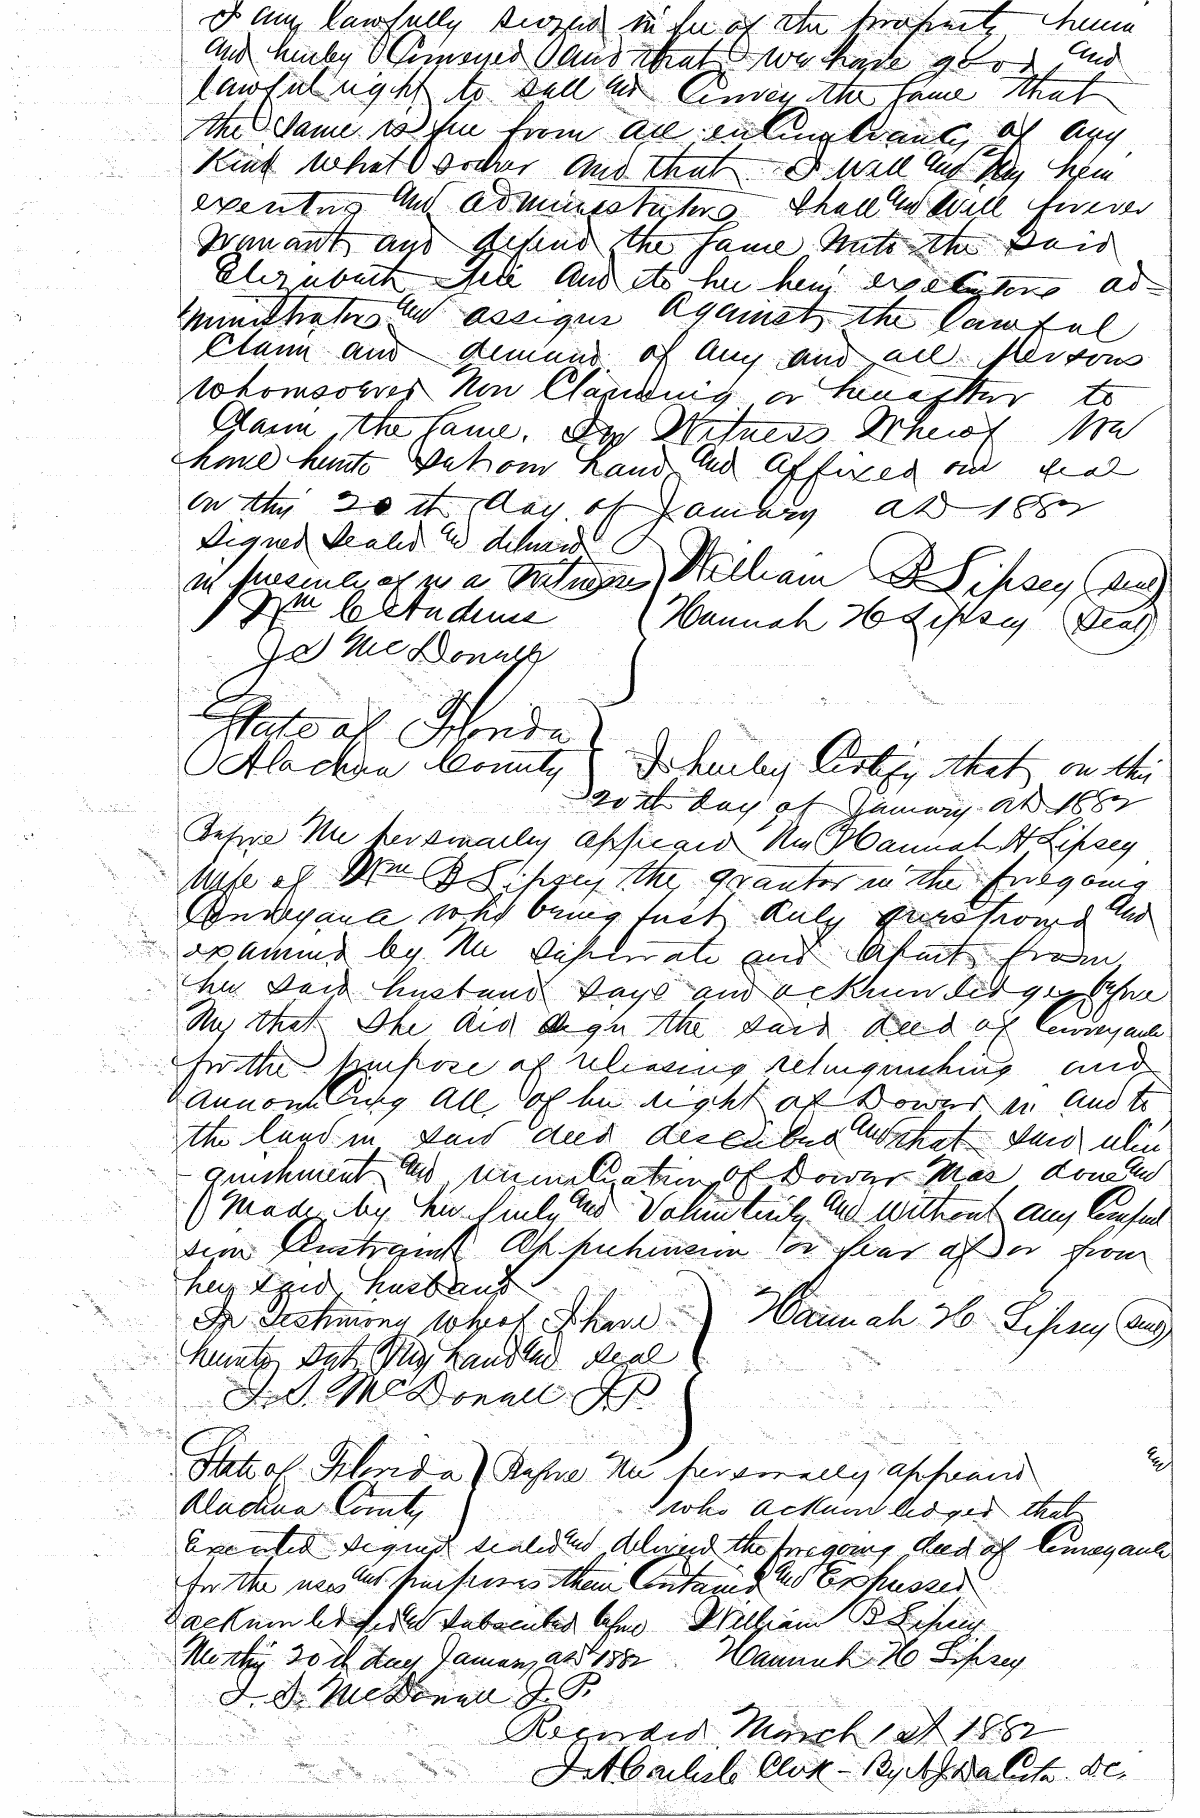 I am lawfully seized in fee of the property herein
and hereby Conveyed and that we have good and
lawful right to sell and Convey the same that
the same is free from all encumbrance of any
kind whatsoever and that I will and my heirs
executors and administrators shall and will forever
warrant and defend the same unto the said
Elizabeth and to her heirs executors ad-
ministrators and assigns against the lawful
Claim and demand of any and all persons
whomsoever Now Claiming or hereafter to
Claim the same. In Witness Whereof We
have hereunto set our hand and affixed our seal
on this 20th day of January AD 1882
Signed Sealed and delivered
in presence of us as Witnesses William B Lipsey (Seal)
Wm C Andrews Hannah H Lipsey (Seal)
J S McDonall
State of Florida
Alachua County I hereby Certify that on this
20th day of January AD 1882
Before Me personally appeared Mrs Hannah H Lipsey
Wife of Wm B Lipsey the grantor in the foregoing
Conveyance who being first duly questioned and
examined by Me seperate and apart from
her said husband says and acknowledges before
My that She did sign the said deed of Conveyance
for the purpose of releasing relinquishing and
all of her right of Dower in and to
the land in said deed described and that said relin
quishment and renunciation of Dower Was done and
Made by her freely and Voluntarily and without any Compul
sion Constraint Apprehension or fear of or from
her said husband
In Testimony whereof I have Hannah H Lipsey (Seal)
hereunto set My hand and seal
J. S. McDonall J.P.
State of Florida Before Me personally appeared and
Alachua County who acknowledged that
Executed signed sealed and delivered the foregoing deed of Conveyance
for the uses and purposes therein Contained and Expressed
acknowledged and subscribed before William B Lipsey
Me this 20th day January AD 1882 Hannah H Lipsey
J. S. McDonall J. P.
Recorded March 1st 1882
J A Carlisle Clerk - By A J DaCosta D.C.